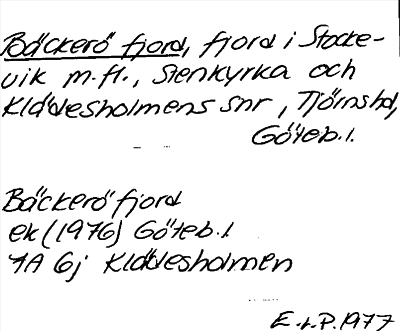 Bäckerö fjord, fjord i Stocke-
vik m.fl., Stenkyrka och
Klädesholmens snr, Tjörns hd,
Göteb.l.
Bäckerö fjord
ek (1976) Göteb.l
7A 6j Klädesholmen
E.L.P. 1977